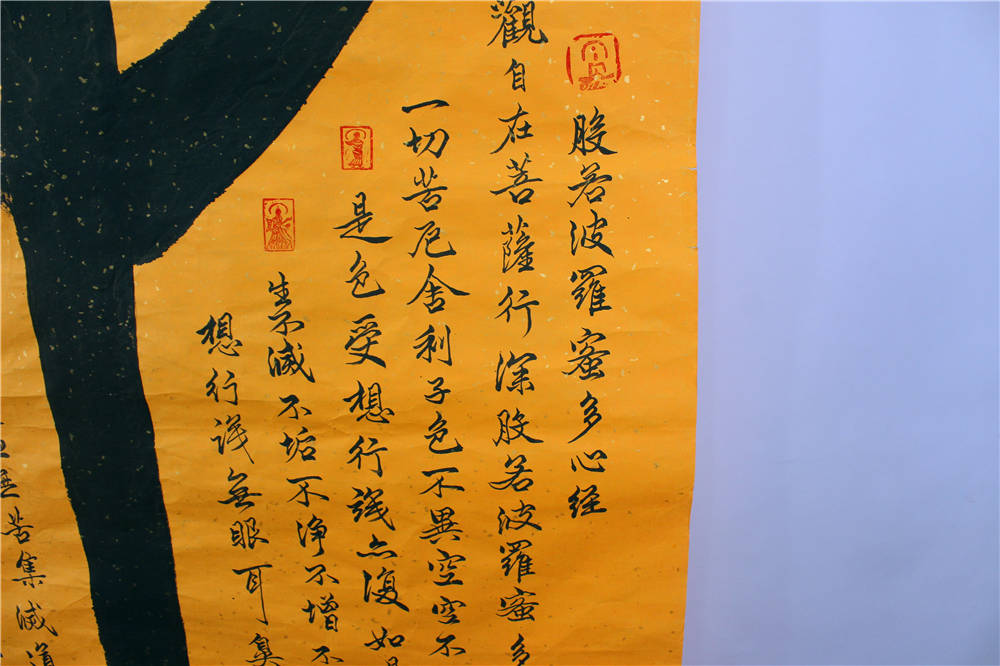 般若波羅蜜多心经
觀自在菩薩行深般若波羅蜜多
一切苦厄舍利子色不異空空不
是色受想行識亦復如是
生不滅不垢不浄不增不
想行識無眼耳鼻
無苦集滅道